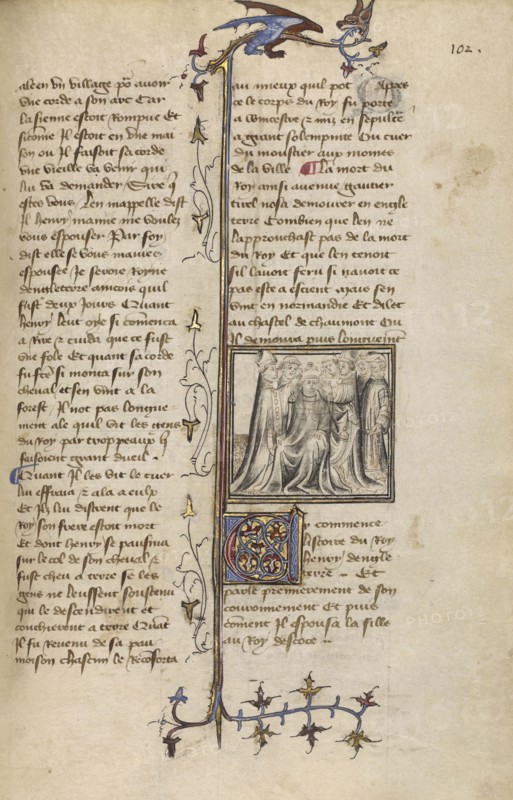 102.
ala en un village por avoir
une corde a son arc Car
la sienne estoit rompue Et
sicome Il estoit en une mai
son ou Il faisoit sa corde
une vieille va venir qui
lui va demander Sire q
estes vous Len mappelle dist
Il henry mamie me voulez
vous espouser Par foy
dist elle se vous mavies
espousee Je seroie Royne
dengleterre aincois quil
fust deux Jours Quant
henry leut oye si comenca
a Rire et cuida que ce fust
une fole Et quant sa corde
fu fce si monta sur son
cheval et sen vint a la
forest Il not pas longue
ment ale quil vit les gens
du Roy par troppeaux q
faisoient grant dueil
Quant Il les vit le cuer
lui effraia et ala a eulx
Et Ilz lui distrent que le
Roy son frere estoit mort
Et dont henry se pausma
sur le col de son cheval et
fust cheu a terre se ses
gens ne leussent soustenu
qui le descendirent et
coucherent a terre Quat
Il fu Revenu de sa pau
moison chascun le Reconforta
au mieux quil pot Apres
ce le corps du Roy fu porte
a wincestre et mis en sepulture
a grant solempnite Ou cuer
du moustier aux moines
de la ville La mort du
Roy ainsi avenue gautier
tirel nosa demourer en engle
terre Combien que len ne
lapprouchast pas de la mort
du Roy Et que len tenoit
sil lavoit feru si navoit ce
pas este a escient mais sen
vint en normandie Et dilec
au chastel de chaumont Ou
Il demoura puis longuement
Cy commence
listoire du Roy
henry dengle
terre Et
parle premierement de son
couronnement Et puis
coment Il espousa la fille
au Roy descoce